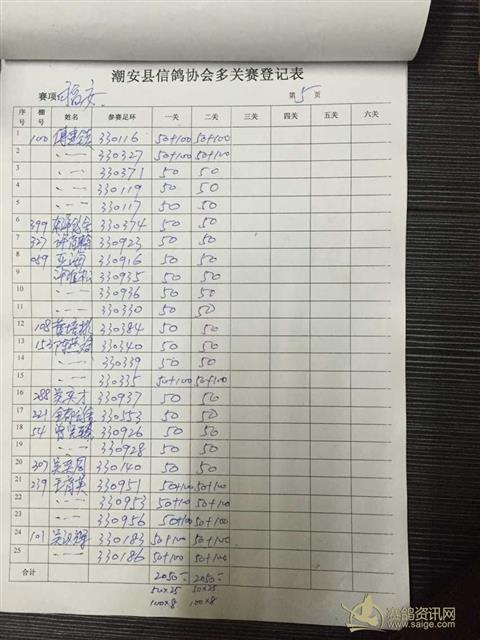 潮安县信鸽协会多关赛登记表
赛项: 福安 第 5 页
序号 棚号 姓名 参赛足环 一关 二关 三关 四关 五关 六关
1 100 330116 50+100 50+100
2 330327 50+100 50+100
3 330371 50 50
4 330119 50 50
5 330117 50 50
6 399 330374 50 50
7 327 330923 50 50
8 059 330916 50 50
9 330935 50 50
10 330936 50 50
11 330330 50 50
12 108 330384 50 50
13 153 330340 50 50
14 330339 50 50
15 330335 50+100 50+100
16 288 330937 50 50
17 221 330553 50 50
18 54 330926 50 50
19 330928 50 50
20 307 330140 50 50
21 239 王育英 330951 50+100 50+100
22 330953 50+100 50+100
23 330956 50+100 50+100
24 101 330183 50+100 50+100
25 330186 50+100 50+100
合计 2050 2050
50×25 50×25
100×8 100×8
赛鸽资讯网
www.saige.com